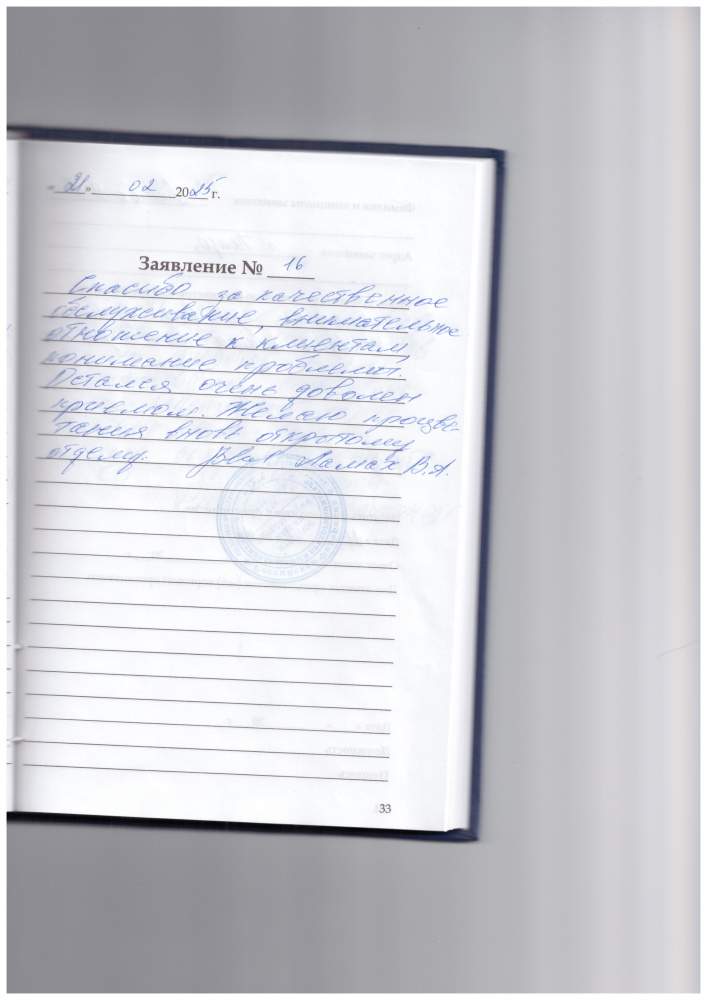 «21» 02 2025 г.
Заявление № 16
Спасибо за качественное
обслуживание, внимательное
отношение к клиентам,
понимание проблемы.
Остался очень доволен
приемом. Желаю процве-
тания вновь открытому
отделу. Ламах В.А.
33